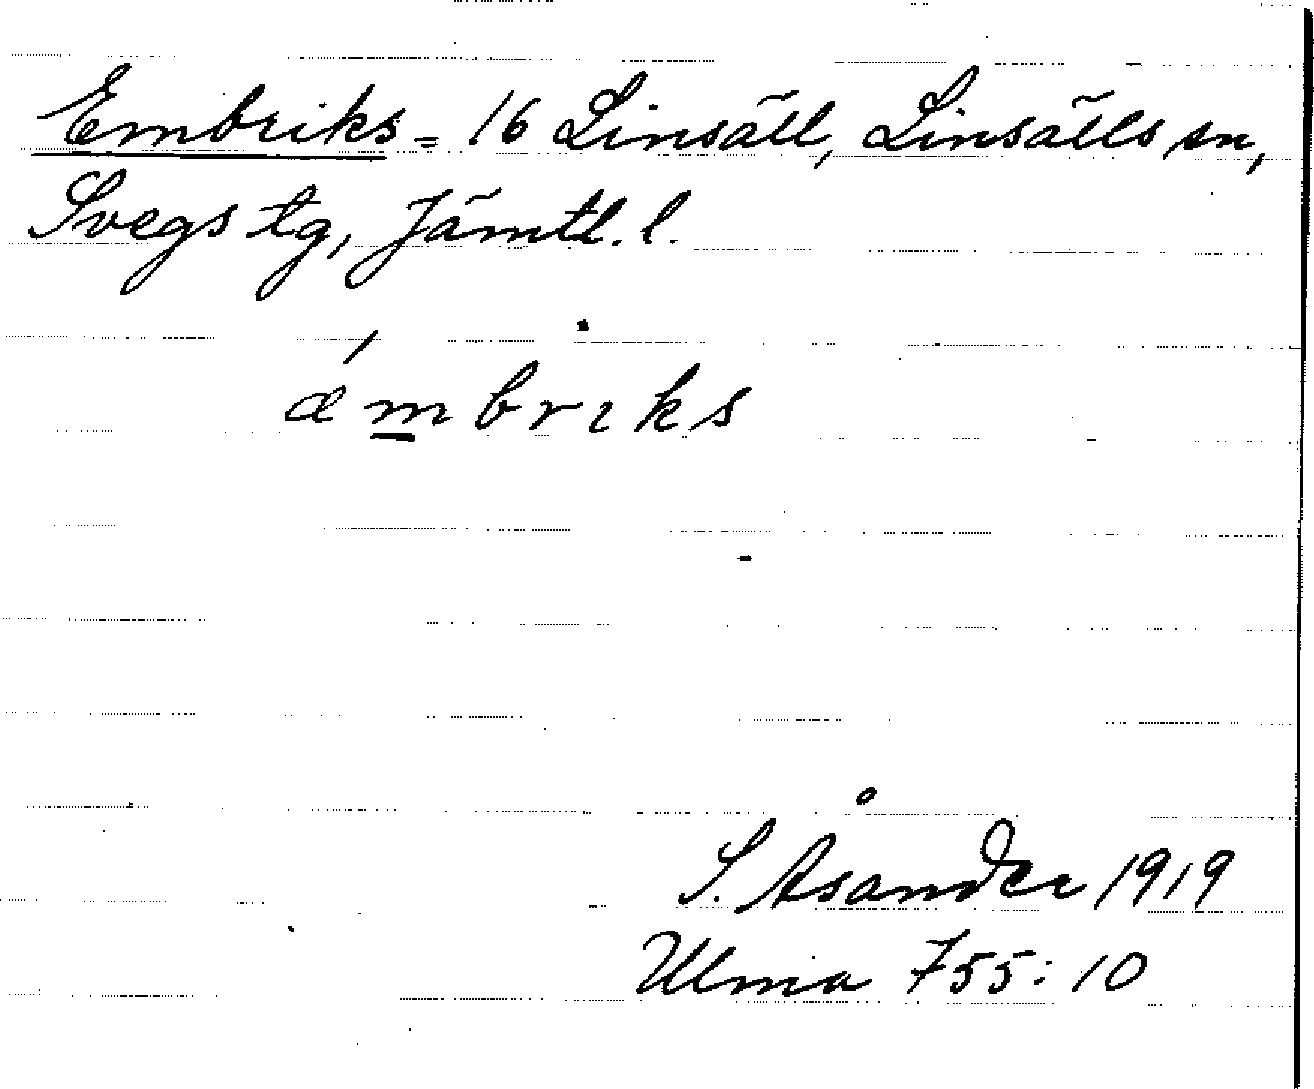 Embriks= 16 Linsäll, Linsälls sn,
Svegs tg, Jämtl. l.
æ´m̲brıks
S. Åsander 1919
Ulma 755:10